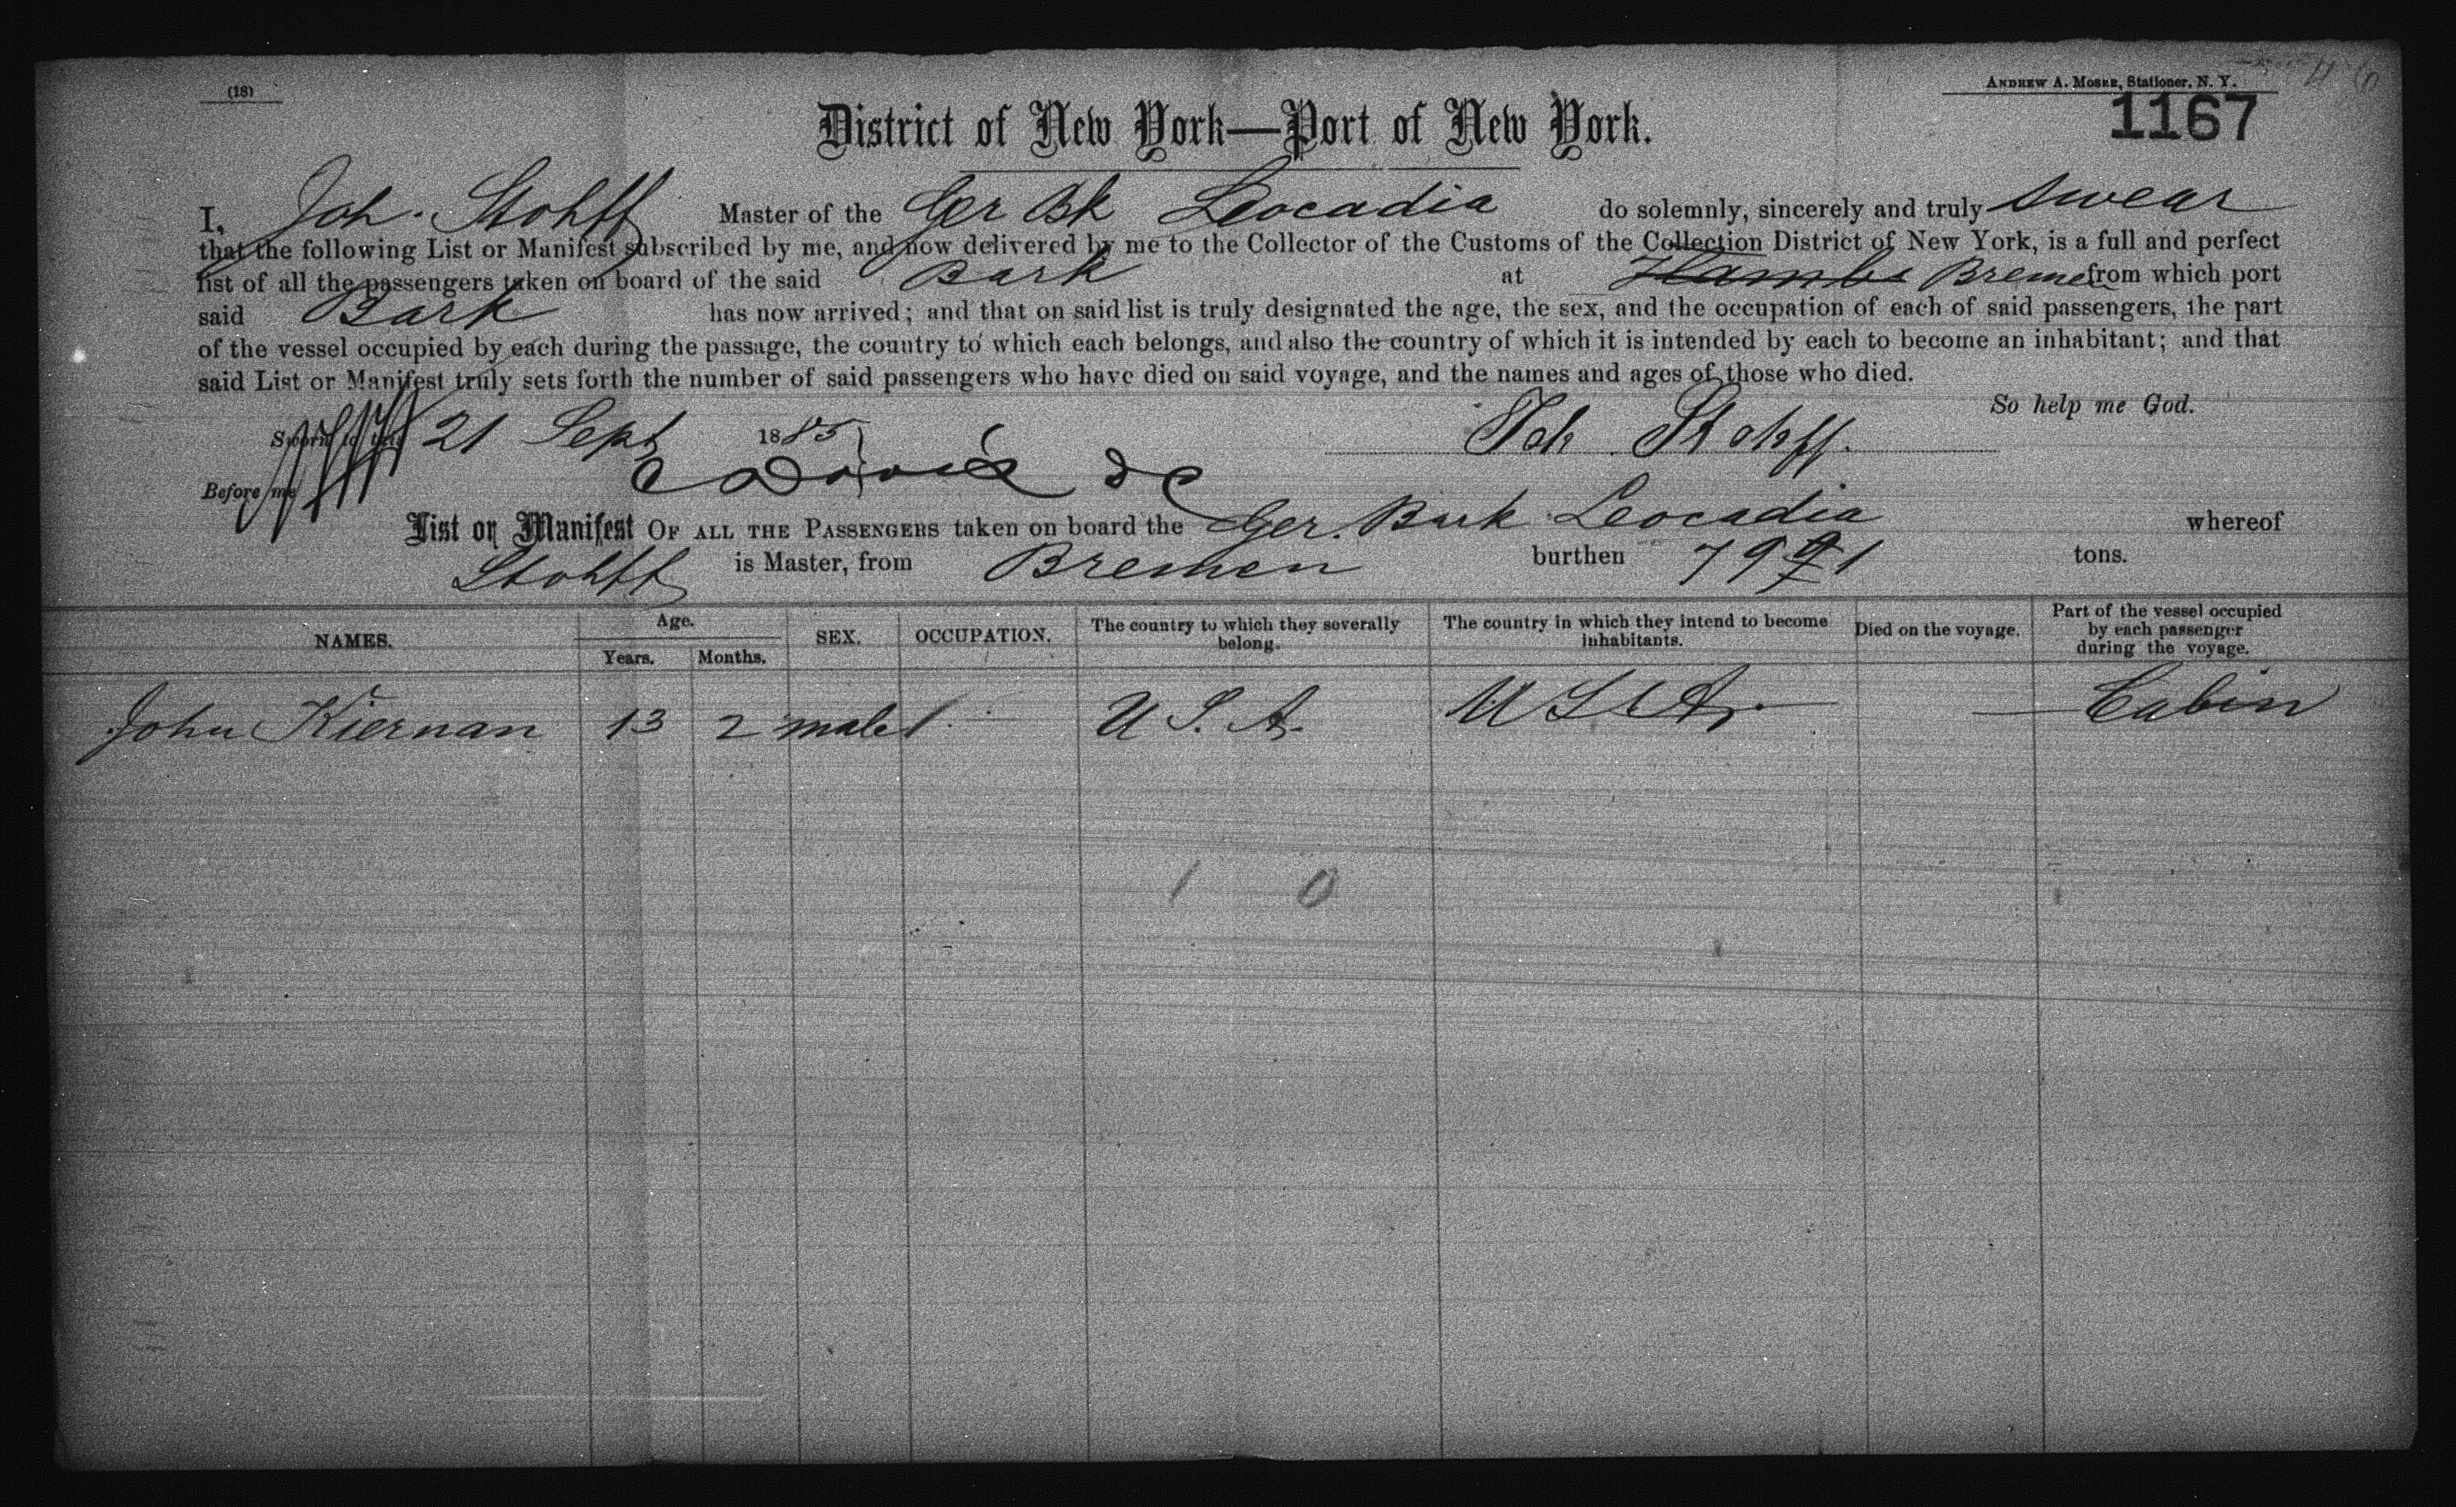 (18)
ANDREW A. MOSER, Stationer, N. Y.
1167
District of New York—Port of New York.
I, Joh. Stohff Master of the Ger Bk Leocadia do solemnly, sincerely and truly swear
that the following List or Manifest subscribed by me, and now delivered by me to the Collector of the Customs of the Collection District of New York, is a full and perfect
list of all the passengers taken on board of the said Bark at Hambs Bremen from which port
said Bark has now arrived; and that on said list is truly designated the age, the sex, and the occupation of each of said passengers, the part
of the vessel occupied by each during the passage, the country to which each belongs, and also the country of which it is intended by each to become an inhabitant; and that
said List or Manifest truly sets forth the number of said passengers who have died on said voyage, and the names and ages of those who died.
So help me God.
Sworn to this 21 Sept 1885 Joh. Stohff.
Before me
List or Manifest OF ALL THE PASSENGERS taken on board the Ger. Bark Leocadia whereof
Stohff is Master, from Bremen burthen tons.
NAMES. Age. Years. Months. SEX. OCCUPATION. The country to which they severally belong. The country in which they intend to become inhabitants. Died on the voyage. Part of the vessel occupied by each passenger during the voyage.
John Kiernan 13 2 male U. S. A. U S A. Cabin
1 0